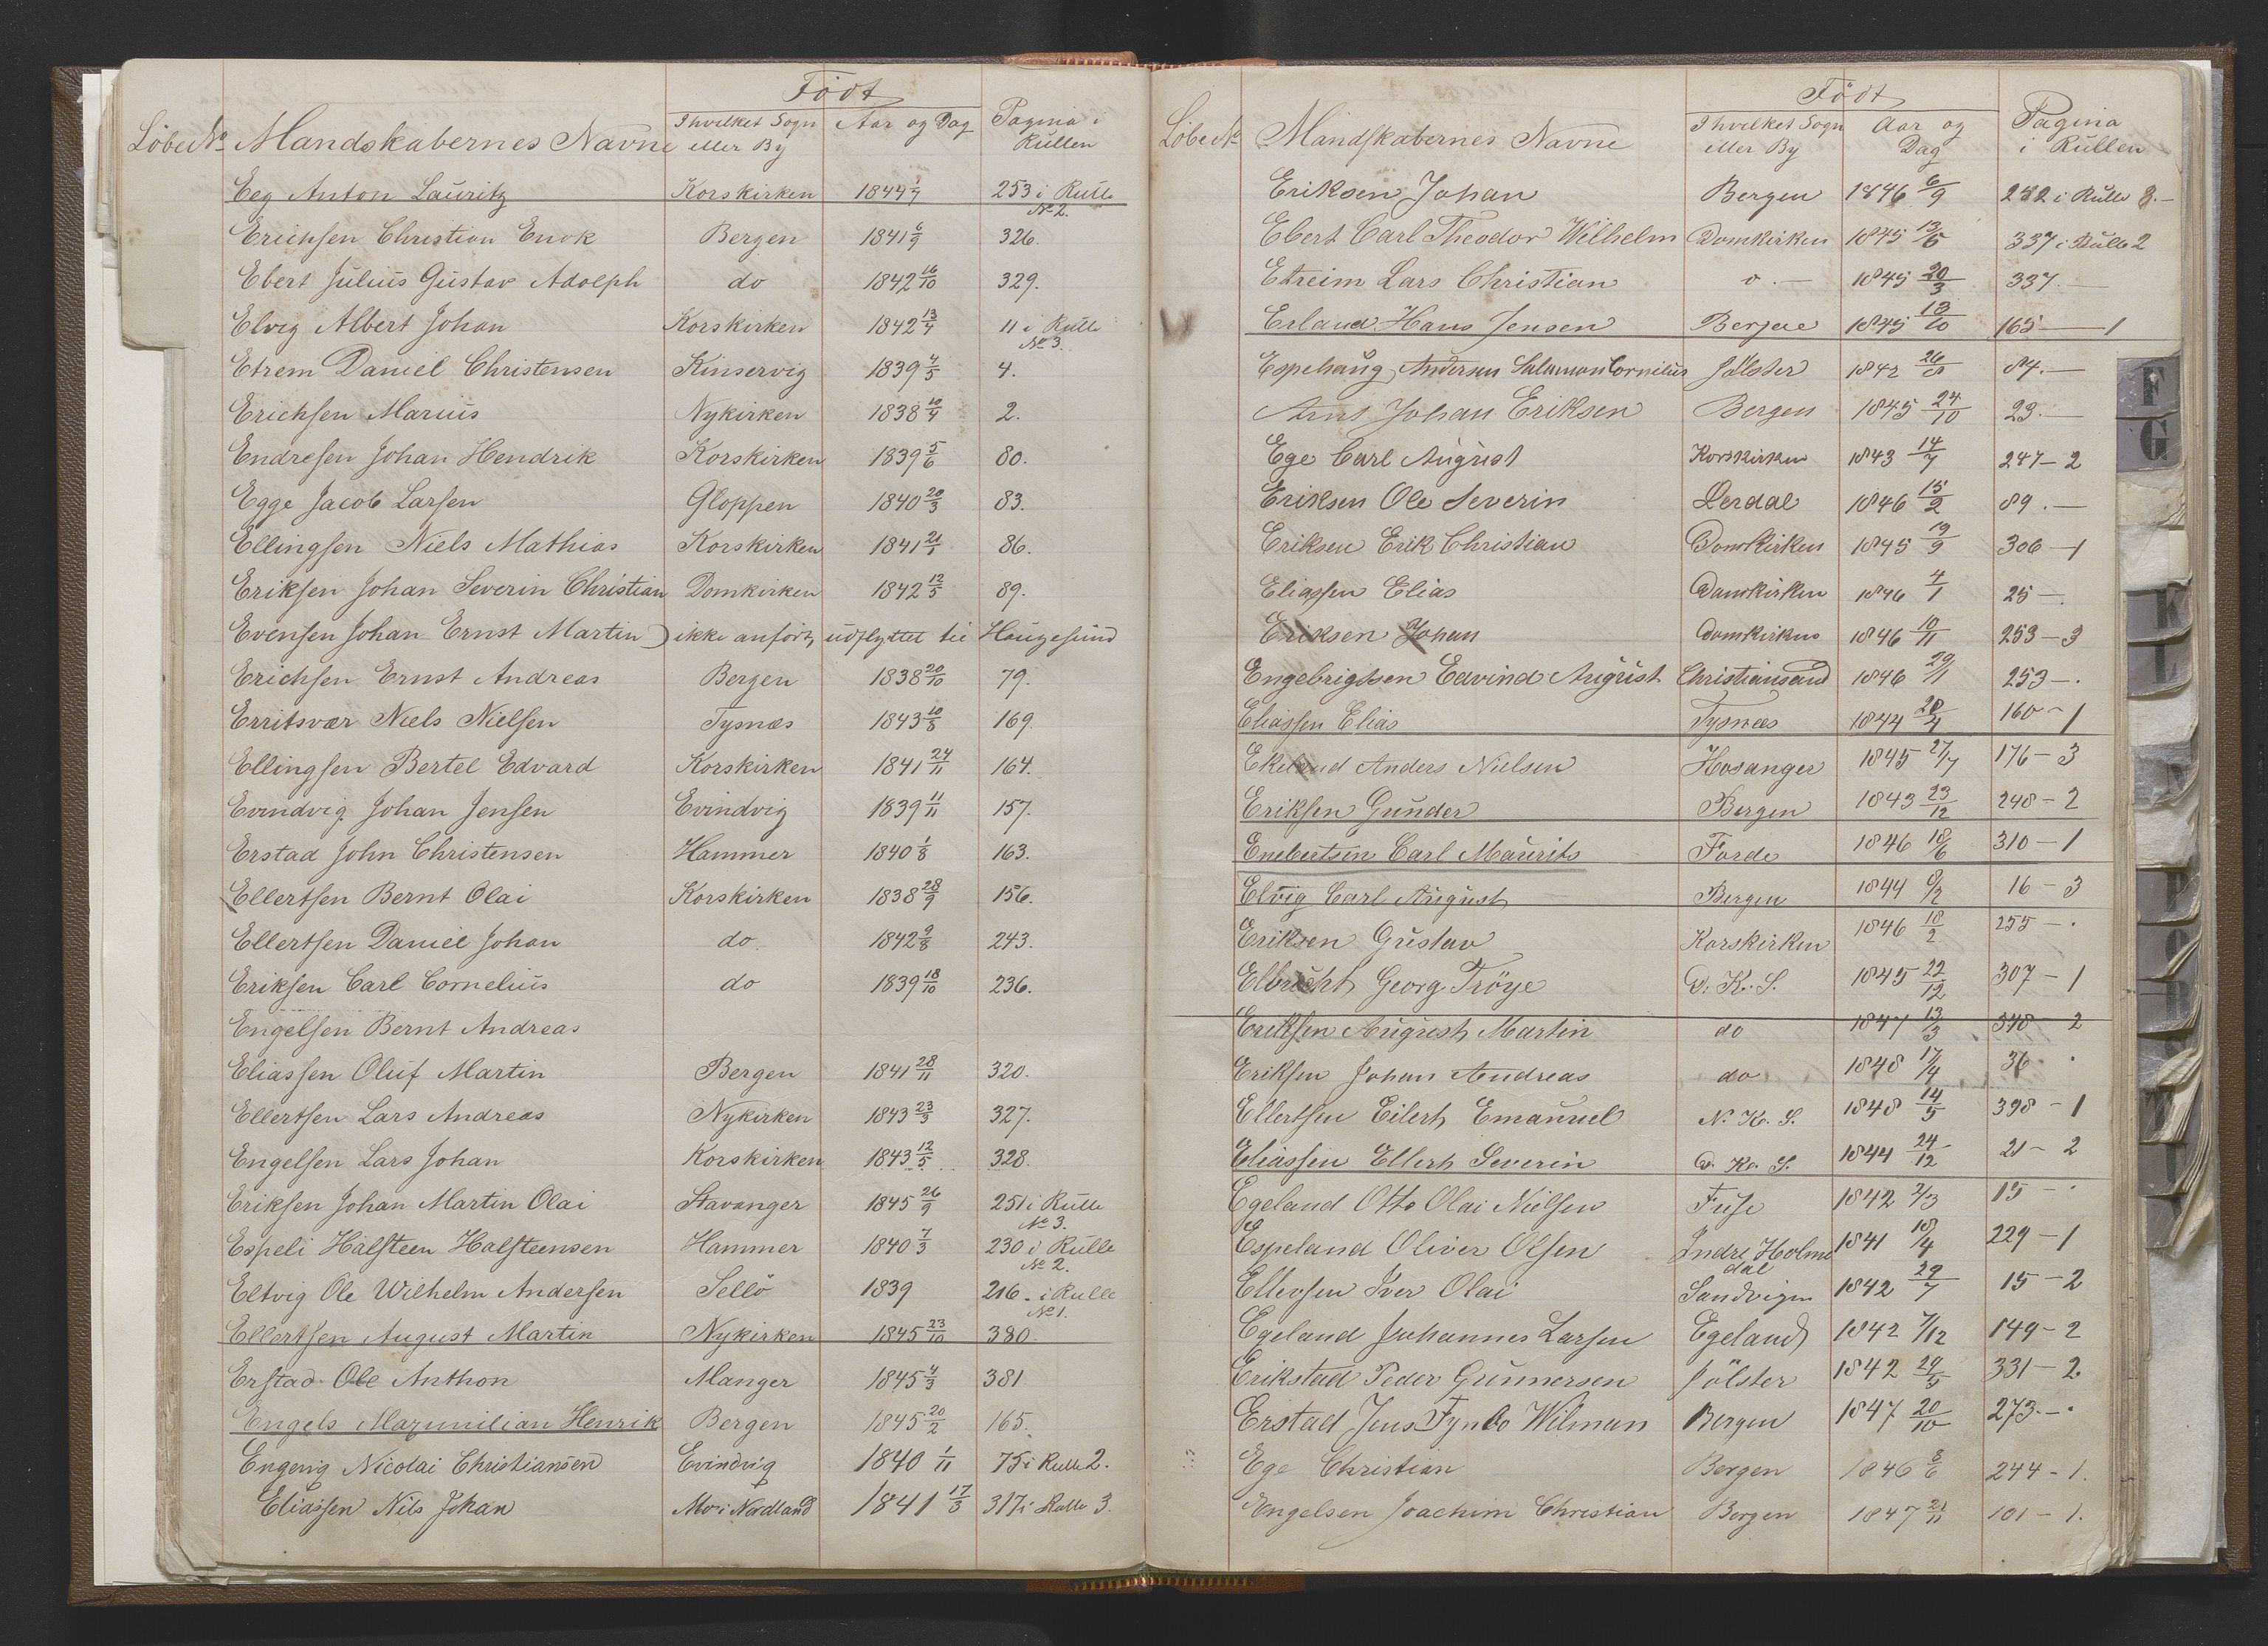 Födt
Löbe No Mandskabernes Navne I hvilket Sogn eller By Aar og Dag Pagina i Rullen
Eeg Anton Lauritz Korskirken 1844 253 i Rulle No 2.
Erichsen Christian Enok Bergen 1841 6/9 326.
Ebert Julius Gustav Adolph do 1842 16/10 329.
Elvig Albert Johan Korskirken 1842 13/4 11 i Rulle No 3.
Etrem Daniel Christensen Kinservig 1839 4/5 4.
Erichsen Marius Nykirken 1838 10/4 2.
Endresen Johan Hendrik Korskirken 1839 5/6 80.
Egge Jacob Larsen Gloppen 1840 20/3 83.
Ellingsen Niels Mathias Korskirken 1841 21/1 86.
Eriksen Johan Severin Christian Domkirken 1842 12/5 89.
Evensen Johan Ernst Martin) ikke anfört, udflyttet til Haugesund
Erichsen Ernst Andreas Bergen 1838 20/10 79.
Erritsvær Niels Nielsen Tysnæs 1843 10/8 169.
Ellingsen Bertel Edvard Korskirken 1841 24/11 164.
Evindvig Johan Jensen Evindvig 1839 11/11 157.
Erstad John Christensen Hammer 1840 1/8 163.
Ellertsen Bernt Olai Korskirken 1838 28/9 156.
Ellertsen Daniel Johan do. 1842 9/8 243.
Eriksen Carl Cornelius do 1839 18/10 236.
Engelsen Bernt Andreas
Eliassen Oluf Martin Bergen 1841 28/11 320.
Ellertsen Lars Andreas Nykirken 1843 23/3 327.
Engelsen Lars Johan Korskirken 1843 12/5 328.
Eriksen Johan Martin Olai Stavanger 1845 26/9 251 i Rulle No 3.
Espeli Halsteen Halsteensen Hammer 1840 7/3 230 i Rulle No 2.
Eltvig Ole Wilhelm Andersen Sellö 1839 216 - i Rulle No 1.
Ellertsen August Martin Nykirken 1845 23/10 380.
Erstad Ole Anthon Manger 1845 4/3 381.
Engels Maximilian Henrik Bergen 1845 20/2 165.
Engevig Nicolai Christiansen Evindvig 1840 1/11 75 i Rulle 2.
Eliassen Nils Johan Mo i Nordland 1841 17/3 317 i Rulle 3.
Födt
Löbe No Mandskabernes Navne I hvilket Sogn eller By Aar og Dag Pagina i Rullen
Eriksen Johan Bergen 1846 6/9 282 i Rulle 3.-
Ebert Carl Theodor Wilhelm Domkirken 1845 337 i Rulle 2
Etreim Lars Christian o.- 1845 20/3 337.-
Erland Hans Jensen 1845 165 - 1
Espehaug Andersen Salamon Cornilius Jölster 1842 84.-
Arnt Johan Eriksen Bergen 1845 24/10 23.-
Ege Carl August Korskirken 1843 14/7 247 - 2
Eriksen Ole Severin Lerdal 1846 15/2 89.-
Eriksen Erik Christian Domkirken 1845 19/9 306 - 1
Eliassen Elias Domkirken 1846 4/1 25 -.
Eriksen Johan Domkirken 1846 10/11 253 - 3
Engebrigtsen Edvind August Christiansand 1846 29/1 253 -.
Eliassen Elias Tysnæs 1844 28/4 160 - 1
Ekelund Anders Nielsen Hosanger 1845 27/7 176 - 3
Eriksen Gunder Bergen 1843 23/12 248 - 2
Enebertsen Carl Maurits Förde 1846 18/6 310 - 1
Elvig Carl August Bergen 1844 16 - 3
Eriksen Gustav Korskirken 1846 18/2 255 -.
Elbrecht Georg Tröye D. K. S. 1845 22/12 307 - 1
Eriksen August Martin do 1847 13/3 348 - 2
Eriksen Johan Andreas do 1848 17/4 36.
Ellertsen Eilert Emanuel N. K. S. 1848 14/5 398 - 1
Eliassen Ellert Severin D. K. S. 1844 24/12 21 - 2
Egeland Otto Olai Nielsen Fuse 1842 2/3 15 -.
Espeland Oliver Olsen Indre Holmedal 1841 18/4 229 - 1
Ellevsen Iver Olai Sandvigen 1842 29/7 15 - 2
Egeland Johannes Larsen Egeland 1842 7/12 149 - 2
Erikstad Peder Gunnersen Jölster 1842 331 - 2
Erstad Jens Fynbo Wilman Bergen 1847 20/10 273.-.
Ege Christian Bergen 1846 8/6 244 - 1.
Engelsen Joachim Christian Bergen 1847 21/11 101 - 1.
F
G
K
L
N
P
R